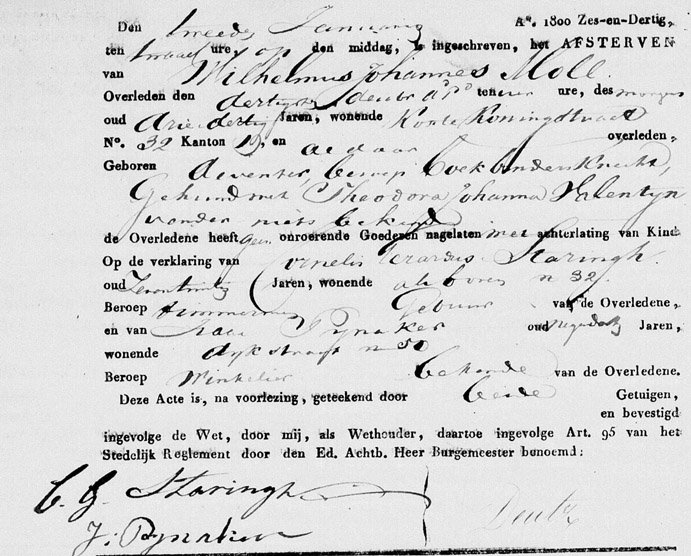 Den tweede Januarij Ao. 1800 Zes-en-Dertig,
ten twaalf ure, op den middag, is ingeschreven, het AFSTERVEN
van Wilhelmus Johannes Moll.
Overleden den dertigste decbr a.p. ten ure, des morgens
oud drie dertig Jaren, wonende Korte Koningstraat
No. 32 Kanton 19, en aldaar overleden,
Geboren deventer, beroep boekbinders knecht,
Gehuwd met Theodora Johanna Valentyn
verder niets bekend
de Overledene heeft geen onroerende Goederen nagelaten met achterlating van Kind
Op de verklaring van Cornelis Gerardus Staringh.
oud Jaren, wonende als boven n 32.
Beroep timmerman Gebuur van de Overledene,
en van Isaac Pynaker oud Jaren,
wonende dykstraat n 50
Beroep Winkelier bekende van de Overledene.
Deze Acte is, na voorlezing, geteekend door beide Getuigen,
en bevestigd
ingevolge de Wet, door mij, als Wethouder, daartoe ingevolge Art. 95 van het
Stedelijk Reglement door den Ed. Achtb. Heer Burgemeester benoemd:
C. G. Staringh
J. Pynaker